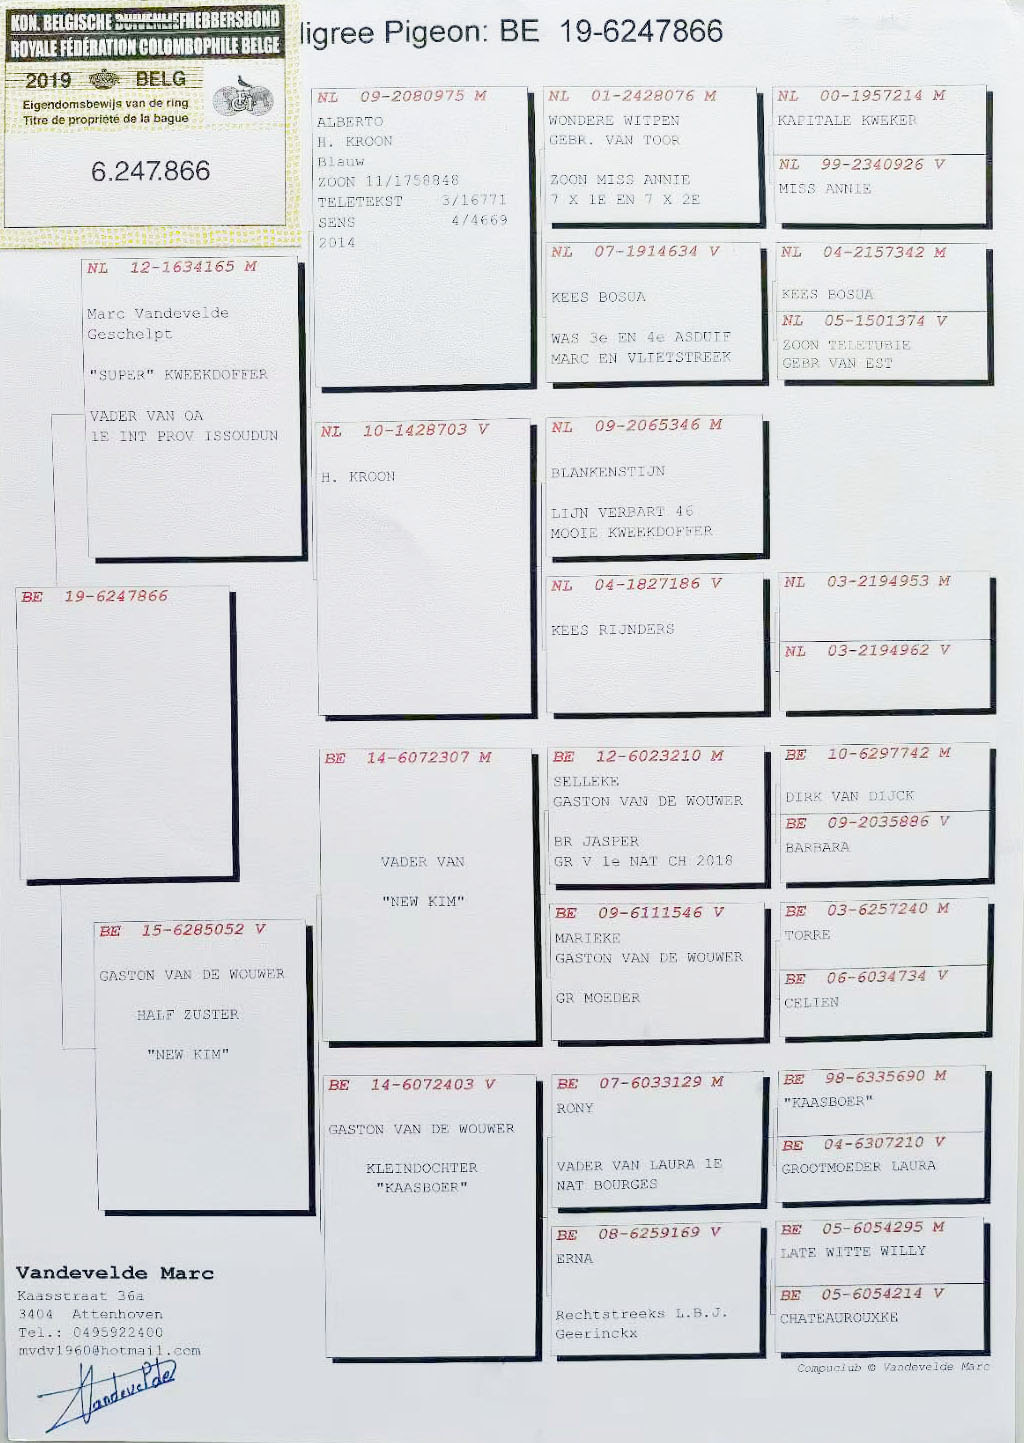 KON. BELGISCHE DUIVENLIEFHEBBERSBOND
ROYALE FÉDÉRATION COLOMBOPHILE BELGE
2019 BELG
Eigendomsbewijs van de ring
Titre de propriété de la bague
6.247.866
igree Pigeon: BE 19-6247866
NL 12-1634165 M
Marc Vandevelde
Geschelpt
"SUPER" KWEEKDOFFER
VADER VAN OA
1E INT PROV ISSOUDUN
BE 19-6247866
BE 15-6285052 V
GASTON VAN DE WOUWER
HALF ZUSTER
"NEW KIM"
NL 09-2080975 M
ALBERTO
H. KROON
Blauw
ZOON 11/1758848
TELETEKST 3/16771
SENS 4/4669
2014
NL 10-1428703 V
H. KROON
BE 14-6072307 M
VADER VAN
"NEW KIM"
BE 14-6072403 V
GASTON VAN DE WOUWER
KLEINDOCHTER
"KAASBOER"
NL 01-2428076 M
WONDERE WITPEN
GEBR. VAN TOOR
ZOON MISS ANNIE
7 X 1E EN 7 X 2E
NL 07-1914634 V
KEES BOSUA
WAS 3e EN 4e ASDUIF
MARC EN VLIETSTREEK
NL 09-2065346 M
BLANKENSTIJN
LIJN VERBART 46
MOOIE KWEEKDOFFER
NL 04-1827186 V
KEES RIJNDERS
BE 12-6023210 M
SELLEKE
GASTON VAN DE WOUWER
BR JASPER
GR V 1e NAT CH 2018
BE 09-6111546 V
MARIEKE
GASTON VAN DE WOUWER
GR MOEDER
BE 07-6033129 M
RONY
VADER VAN LAURA 1E
NAT BOURGES
BE 08-6259169 V
ERNA
Rechtstreeks L.B.J.
Geerinckx
NL 00-1957214 M
KAPITALE KWEKER
NL 99-2340926 V
MISS ANNIE
NL 04-2157342 M
KEES BOSUA
NL 05-1501374 V
ZOON TELETUBIE
GEBR VAN EST
NL 03-2194953 M
NL 03-2194962 V
BE 10-6297742 M
DIRK VAN DIJCK
BE 09-2035886 V
BARBARA
BE 03-6257240 M
TORRE
BE 06-6034734 V
CELIEN
BE 98-6335690 M
"KAASBOER"
BE 04-6307210 V
GROOTMOEDER LAURA
BE 05-6054295 M
LATE WITTE WILLY
BE 05-6054214 V
CHATEAUROUXKE
Vandevelde Marc
Kaasstraat 36a
3404 Attenhoven
Tel.: 0495922400
mvdv1960@hotmail.com
Vandevelde
Compuclub © Vandevelde Marc